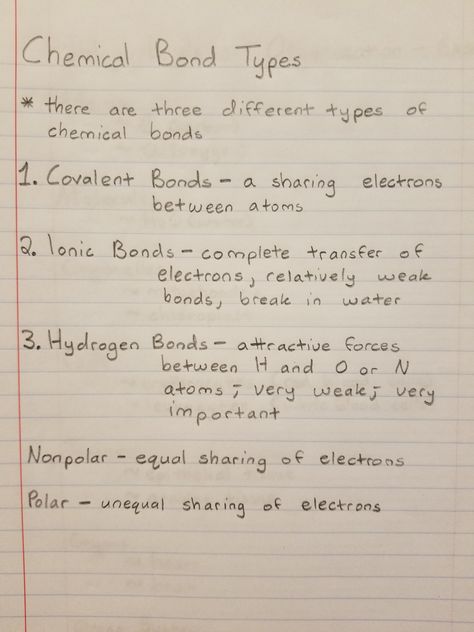 Chemical Bond Types
* there are three different types of
chemical bonds
1. Covalent Bonds - a sharing electrons
between atoms
2. Ionic Bonds - complete transfer of
electrons, relatively weak
bonds, break in water
3. Hydrogen Bonds - attractive forces
between H and O or N
atoms; very weak; very
important
Nonpolar - equal sharing of electrons
Polar - unequal sharing of electrons